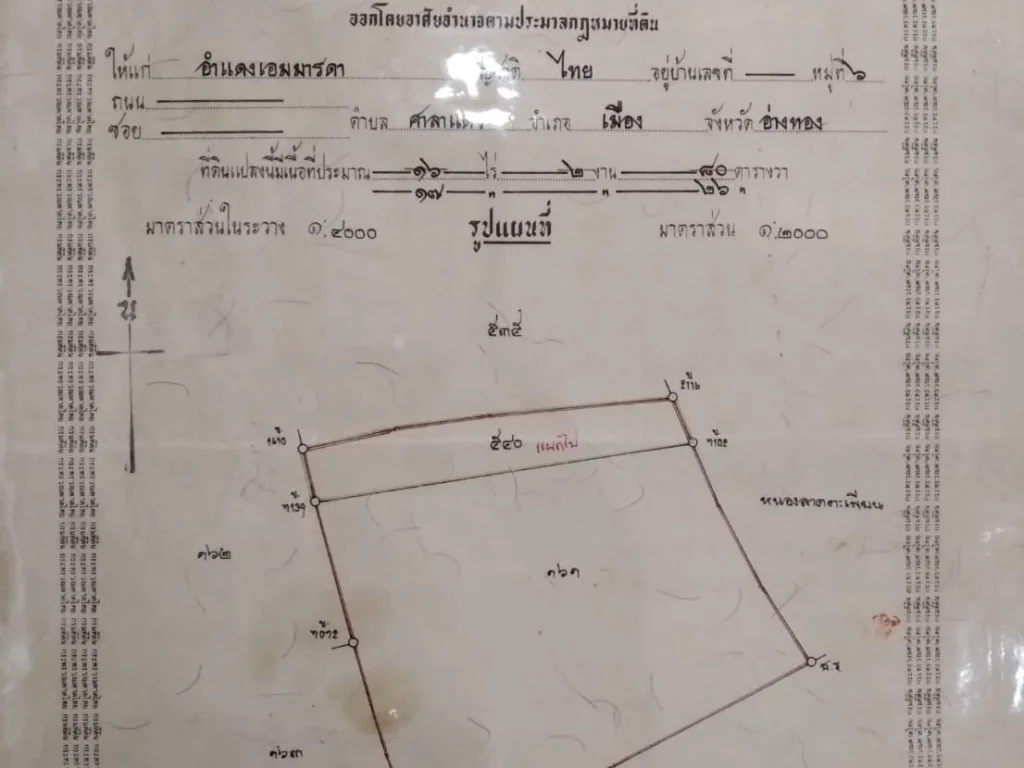 ออกโดยอาศัยอำนาจตามประมวลกฎหมายที่ดิน
ให้แก่ อำแดงเอมมารดา ไทย อยู่บ้านเลขที่ — หมู่ที่ ๖
ถนน —
ซอย — ตำบล ศาลาแดง อำเภอ เมือง จังหวัด อ่างทอง
ที่ดินแปลงนี้มีเนื้อที่ประมาณ —๑๖— ไร่ —๒— งาน —๘๐ ตารางวา
—๑๗— " — " —๒๖ "
มาตราส่วนในระวาง ๑:๔๐๐๐ รูปแผนที่ มาตราส่วน ๑:๒๐๐๐
น
๕๓๕
๕๔๐ แยกไป
หนองลาดตะเพียน
๑๖๒
๑๖๑
๑๖๓